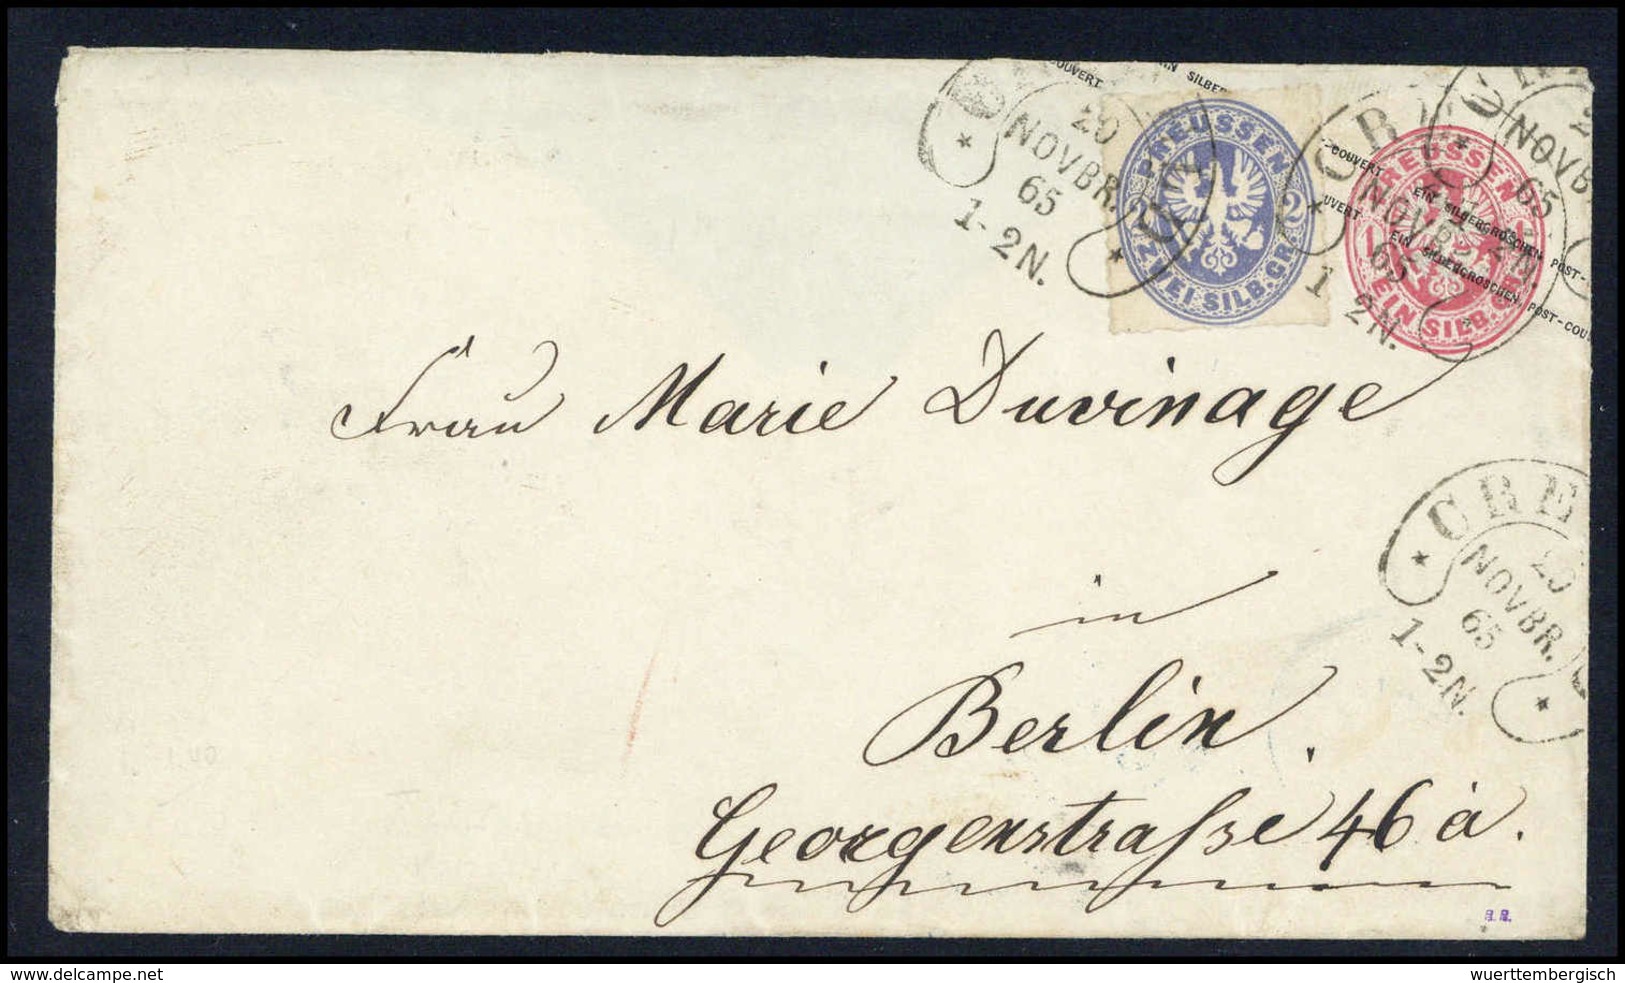 COUVERT EIN SILBER
20
NOVBR.
65
1-2N.
PREUSSEN
2 2
ZWEI SILB.GR.
-COUVERT EIN SILBERGROSCHEN POST-
UVERT EIN SILBERGROSCHEN. POST-COU
PREUSSEN
1
EIN SILB.GR.
CR
NOVBR.
65
1 2N.
NOVB
65
2N.
Frau Marie Duvinage
in
Berlin.
Georgenstraße 46 a.
CRE
20
NOVBR.
65
1-2N.
delcampe.net
wuerttembergisch